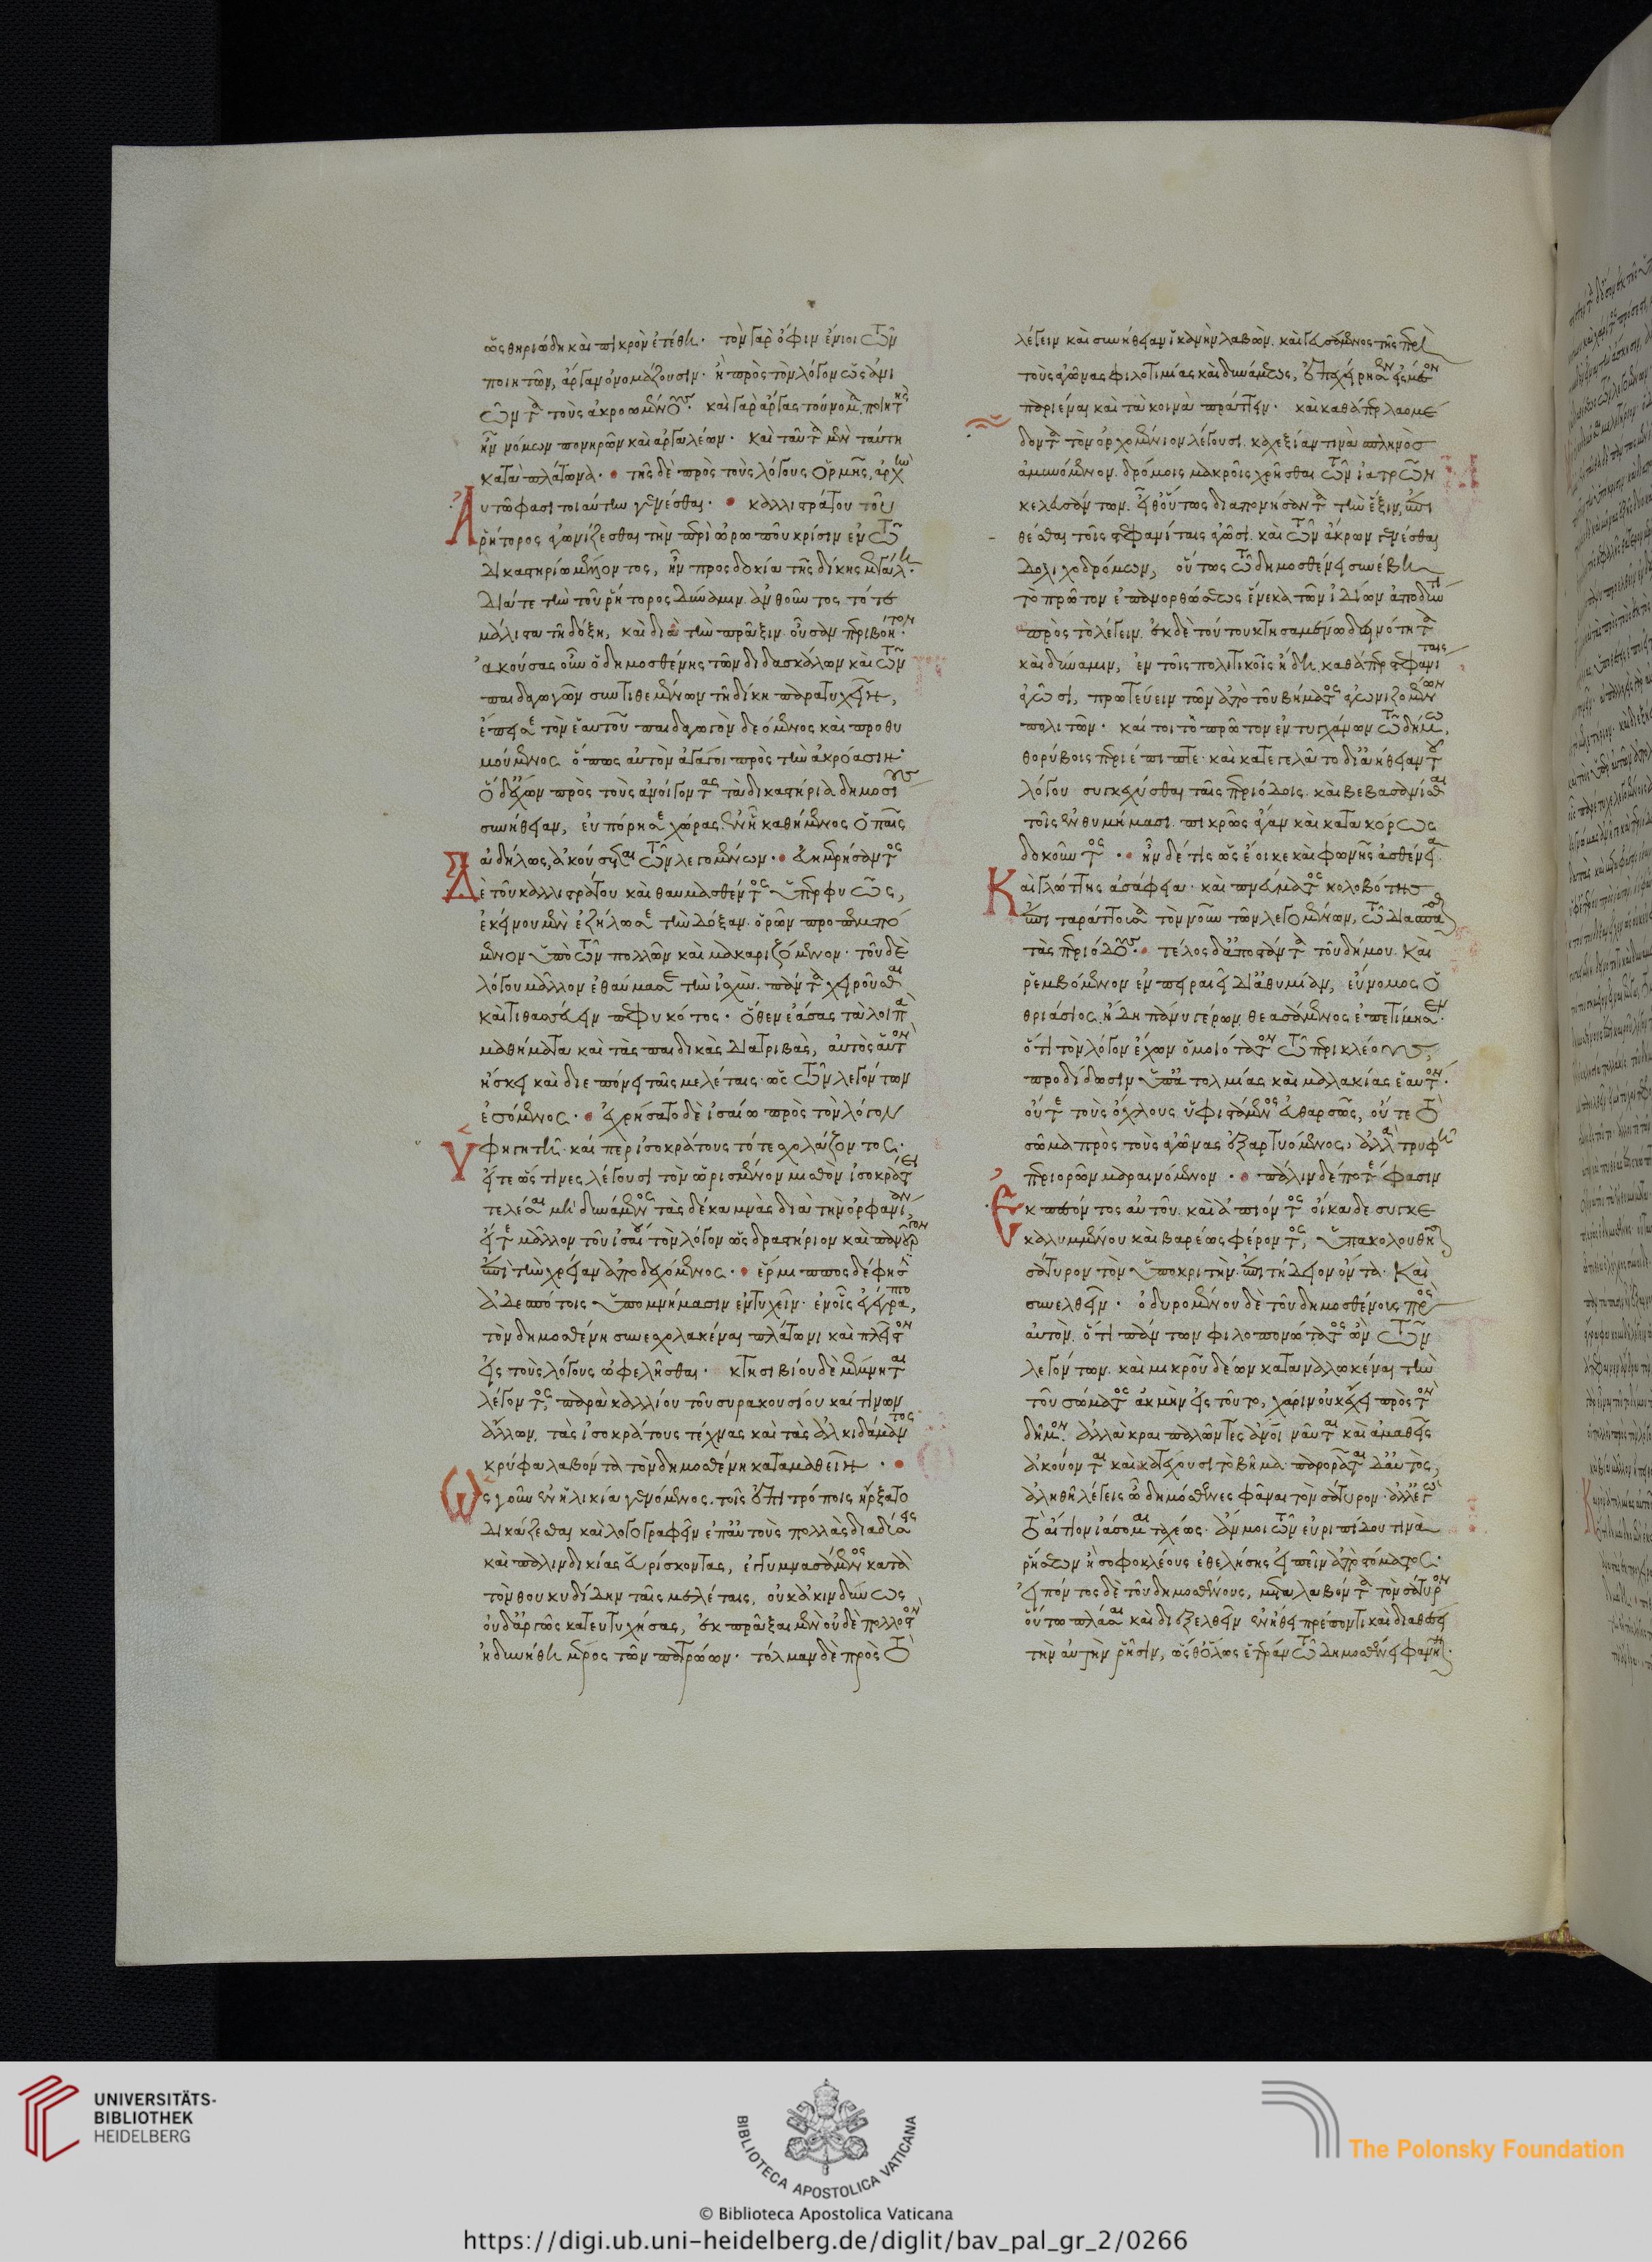 ὡς θηριώδη καὶ πικρὸν ἐτέθη· τὸν γὰρ ὄφιν ἔνιοι τῶν
ποιητῶν, ἀργᾶν ὀνομάζουσιν· ἢ πρὸς τὸν λόγον ὡς ἀνι
ῶντα τοὺς ἀκροωμένους· καὶ γὰρ ἀργᾶς τοὔνομα ποιητὴς
ἦν νόμων πονηρῶν καὶ ἀργαλέων· καὶ ταῦτα μὲν ταύτη
κατὰ πλάτωνα· τῆς δὲ πρὸς τοὺς λόγους ὁρμῆς, ἀρχὴν
Αὐτῶ φασὶ τοιαύτην γενέσθαι· καλλιστράτου τοῦ
ῥήτορος ἀγωνίζεσθαι τὴν περὶ ὠρωποῦ κρίσιν ἐν τῶ
δικαστηρίω μέλλοντος, ἦν προσδοκία τῆς δίκης μεγάλη·
διά τε τὴν τοῦ ῥήτορος δύναμιν ἀνθοῦντος τότε
μάλιστα τῆ δόξη, καὶ διὰ τὴν πρᾶξιν οὖσαν περιβόητον·
ἀκούσας οὖν ὁ δημοσθένης τῶν διδασκάλων καὶ τῶν
παιδαγωγῶν συντιθεμένων τῆ δίκη παρατυχεῖν,
ἔπεισε τὸν ἑαυτοῦ παιδαγωγὸν δεόμενος καὶ προθυ
μούμενος ὅπως αὐτὸν ἀγάγοι πρὸς τὴν ἀκρόασιν·
ὁ δ' ἔχων πρὸς τοὺς ἀνοίγοντας τὰ δικαστήρια δημοσίους
συνήθειαν, εὐπόρησε χώρας ἐν ἧ καθήμενος ὁ παῖς
ἀδήλως, ἀκούσεται τῶν λεγομένων· εὐημερήσαντος
Δὲ τοῦ καλλιστράτου καὶ θαυμασθέντος ὑπερφυῶς,
ἐκείνου μὲν ἐζήλωσε τὴν δόξαν ὁρῶν προπεμπό
μενον ὑπὸ τῶν πολλῶν καὶ μακαριζόμενον· τοῦ δὲ
λόγου μᾶλλον ἐθαύμασε τὴν ἰσχὺν πάντα χειροῦσθαι
καὶ τιθασεύειν πεφυκότος· ὅθεν ἐάσας τὰ λοιπὰ
μαθήματα καὶ τὰς παιδικὰς διατριβὰς, αὐτὸς αὑτὸν
ἤσκει καὶ διεπόνει ταῖς μελέταις ὡς τῶν λεγόντων
ἐσόμενος· ἐχρήσατο δὲ ἰσαίω πρὸς τὸν λόγον
Ὑφηγητῆ· καίπερ ἰσοκράτους τότε σχολάζοντος·
εἴτε ὥς τινες λέγουσι τὸν ὡρισμένον μισθὸν ἰσοκράτει
τελέσαι μὴ δυνάμενος τὰς δέκα μνᾶς διὰ τὴν ὀρφανίαν
εἴτε μᾶλλον τοῦ ἰσαίου τὸν λόγον ὡς δραστήριον καὶ πανοῦργον
ἐπὶ τὴν χρείαν ἀποδεχόμενος· ἕρμιππος δέ φησιν
ἀδεσπότοις ὑπομνήμασιν ἐντυχεῖν· ἐν οἷς ἐγέγραπτο,
τὸν δημοσθένη συνεσχολακέναι πλάτωνι καὶ πλεῖστον
εἰς τοὺς λόγους ὠφελῆσθαι· κτησιβίου δὲ μέμνηται
λέγοντος, παρὰ καλλίου τοῦ συρακουσίου καί τινων
ἄλλων, τὰς ἰσοκράτους τέχνας καὶ τὰς ἀλκιδάμαντος
κρύφα λαβόντα τὸν δημοσθένη καταμαθεῖν·
Ὡς γοῦν ἐν ἡλικία γενόμενος τοῖς ἐπιτρόποις ἤρξατο
δικάζεσθαι καὶ λογογραφεῖν ἐπ' αὐτοὺς πολλὰς διαδύσεις
καὶ παλινδικίας εὑρίσκοντας, ἐγγυμνασάμενος κατὰ
τὸν θουκυδίδην ταῖς μελέταις, οὐκ ἀκινδύνως
οὐδ' ἀργῶς κατευτυχήσας, ἐκπρᾶξαι μὲν οὐδὲ πολλοστὸν
ἠδυνήθη μέρος τῶν πατρώων· τόλμαν δὲ πρὸς τὸ
λέγειν καὶ συνήθειαν ἱκανὴν λαβὼν καὶ γευσάμενος τῆς περὶ
τοὺς ἀγῶνας φιλοτιμίας καὶ δυνάμεως, ἐπεχείρησεν εἰς μέσον
παριέναι καὶ τὰ κοινὰ πράττειν· καὶ καθάπερ λαομέ
δοντα τὸν ὀρχομένιον λέγουσι καχεξίαν τινὰ σπληνὸς
ἀμυνόμενον δρόμοις μακροῖς χρῆσθαι τῶν ἰατρῶν
κελευσάντων εἶθ' οὕτως διαπονήσαντα τὴν ἕξιν, ἐπι
θέσθαι τοῖς στεφανίταις ἀγῶσι καὶ τῶν ἄκρων γενέσθαι
δολιχοδρόμων, οὕτως τῶ δημοσθένει συνέβη
τὸ πρῶτον ἐπανορθώσεως ἕνεκα τῶν ἰδίων ἀποδύντι
πρὸς τὸ λέγειν ἐκ δὲ τούτου κτησαμένω δεινότητα
καὶ δύναμιν, ἐν τοῖς πολιτικοῖς ἤδη καθάπερ στεφανίταις
ἀγῶσι, πρωτεύειν τῶν ἀπὸ τοῦ βήματος ἀγωνιζομένων
πολιτῶν· καίτοι τὸ πρῶτον ἐντυγχάνων τῶ δήμω,
θορύβοις περιέπιπτε καὶ κατεγελᾶτο δι' ἀήθειαν τοῦ
λόγου συγκεχύσθαι ταῖς περιόδοις καὶ βεβασανίσθαι
τοῖς ἐνθυμήμασι πικρῶς ἄγαν καὶ κατακόρως
δοκοῦντος· ἦν δέ τις ὡς ἔοικε καὶ φωνῆς ἀσθένεια
Καὶ γλώττης ἀσάφεια· καὶ πνεύματος κολοβότης
ἐπιταράττουσα τὸν νοῦν τῶν λεγομένων, τῶ διασπᾶσθαι
τὰς περιόδους· τέλος δ' ἀποστάντα τοῦ δήμου καὶ
ῥεμβόμενον ἐν πειραιεῖ δι' ἀθυμίαν, εὔνομος ὁ
θριάσιος ἤδη πάνυ γέρων θεασάμενος ἐπετίμησεν·
ὅτι τὸν λόγον ἔχων ὁμοιότατον τῶ περικλέους,
προδίδωσιν ὑπ' ἀτολμίας καὶ μαλακίας ἑαυτόν·
οὔτε τοὺς ὄχλους ὑφιστάμενος εὐθαρσῶς, οὔτε τὸ
σῶμα πρὸς τοὺς ἀγῶνας ἐξαρτυόμενος, ἀλλὰ τρυφῆ
περιορῶν μαραινόμενον· πάλιν δέ ποτέ φασιν
Ἐκπεσόντος αὐτοῦ καὶ ἀπιόντος οἴκαδε συγκε
καλυμμένου καὶ βαρέως φέροντος, ὑπακολουθῆσαι
σάτυρον τὸν ὑποκριτὴν ἐπιτήδειον ὄντα καὶ
συνελθεῖν· ὀδυρομένου δὲ τοῦ δημοσθένους πρὸς
αὐτὸν ὅτι πάντων φιλοπονώτατος ὢν τῶν
λεγόντων καὶ μικροῦ δέων καταναλωκέναι τὴν
τοῦ σώματος ἀκμὴν εἰς τοῦτο, χάριν οὐκ ἔχει πρὸς τὸν
δῆμον· ἀλλὰ κραιπαλῶντες ἄνθρωποι ναῦται καὶ ἀμαθεῖς
ἀκούονται καὶ κατέχουσι τὸ βῆμα παρορᾶται δ' αὐτός,
ἀληθῆ λέγεις ὦ δημόσθενες φάναι τὸν σάτυρον· ἀλλ' ἐγὼ
τὸ αἴτιον ἰάσομαι ταχέως· ἄν μοι τῶν εὐριπίδου τινὰ
ῥήσεων ἢ σοφοκλέους ἐθελήσης εἰπεῖν ἀπὸ στόματος·
εἰπόντος δὲ τοῦ δημοσθένους, μεταλαβόντα τὸν σάτυρον
οὕτω πλάσαι καὶ διεξελθεῖν ἐν ἤθει πρέποντι καὶ διαθέσει
τὴν αὐτὴν ῥῆσιν, ὥσθ' ὅλως ἑτέραν τῶ δημοσθένει φανῆναι·
UNIVERSITÄTS-
BIBLIOTHEK
HEIDELBERG
BIBLIOTECA APOSTOLICA VATICANA
The Polonsky Foundation
© Biblioteca Apostolica Vaticana
https://digi.ub.uni-heidelberg.de/diglit/bav_pal_gr_2/0266